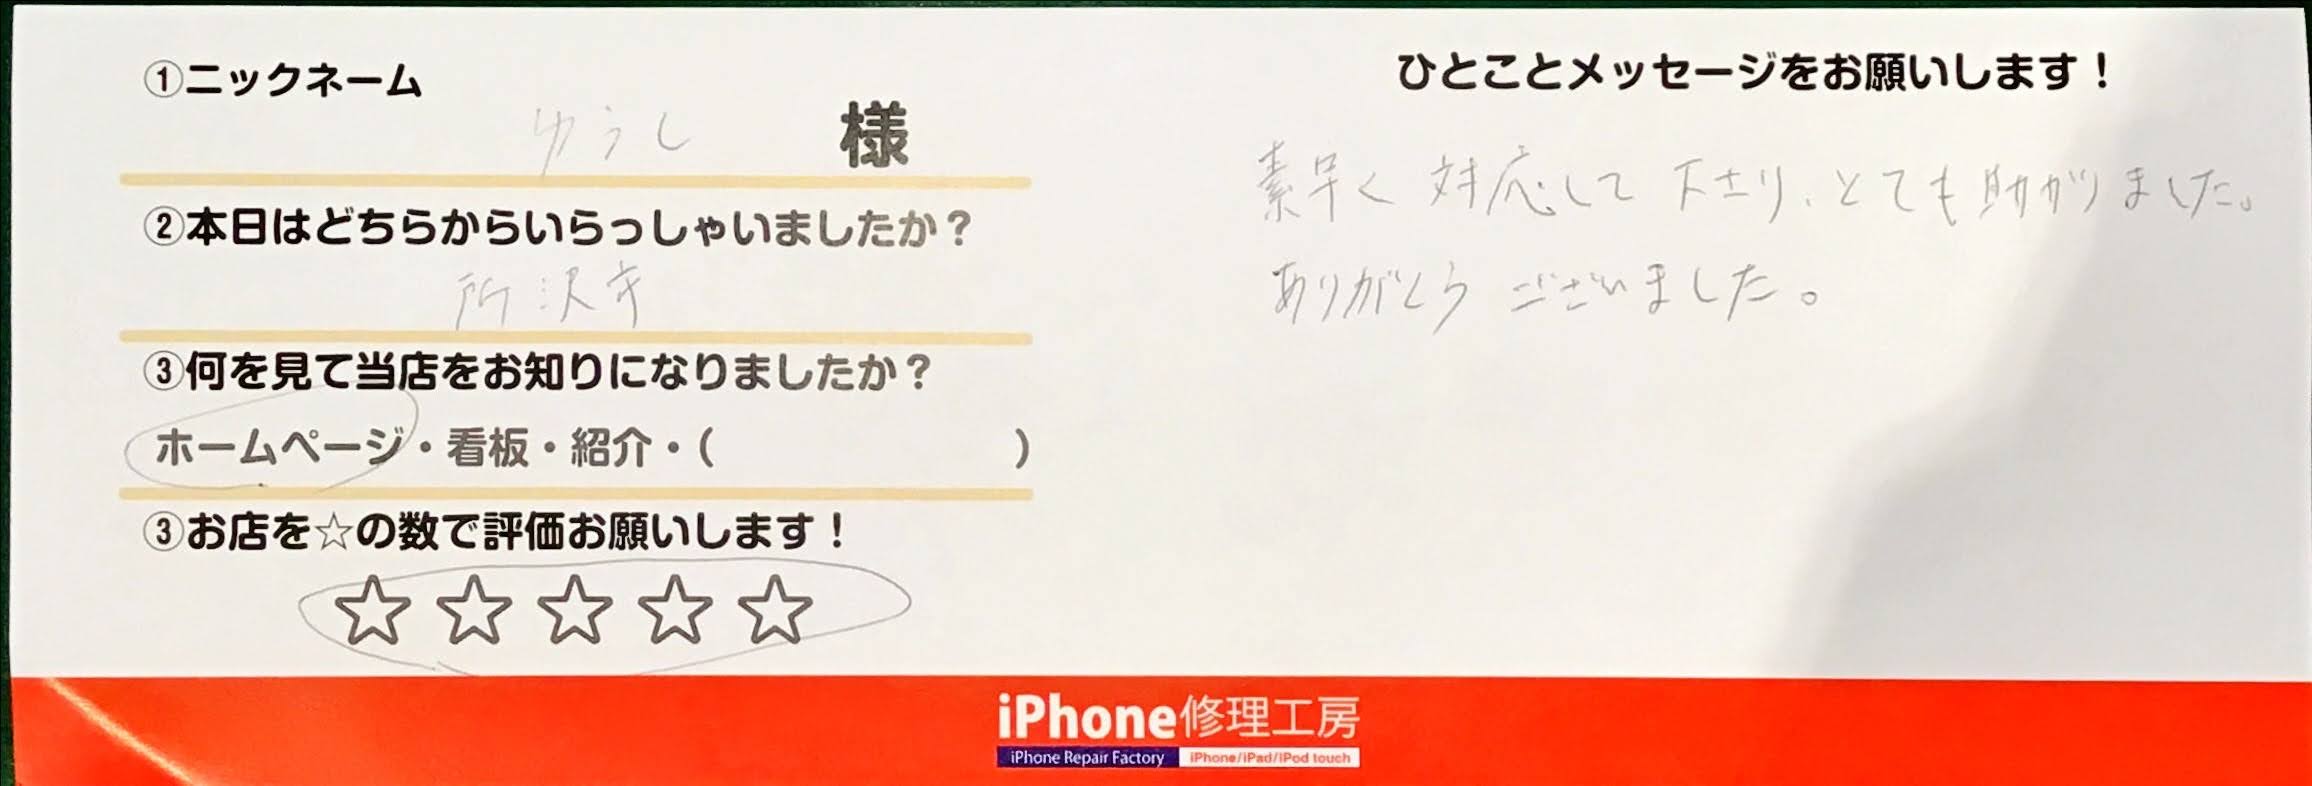 ①ニックネーム
ゆうし 様
②本日はどちらからいらっしゃいましたか？
所沢市
③何を見て当店をお知りになりましたか？
ホームページ・看板・紹介・(　　　)
③お店を☆の数で評価お願いします！
☆☆☆☆☆
ひとことメッセージをお願いします！
素早く対応して下さり、とても助かりました。
ありがとうございました。
iPhone修理工房
iPhone Repair Factory iPhone/iPad/iPod touch